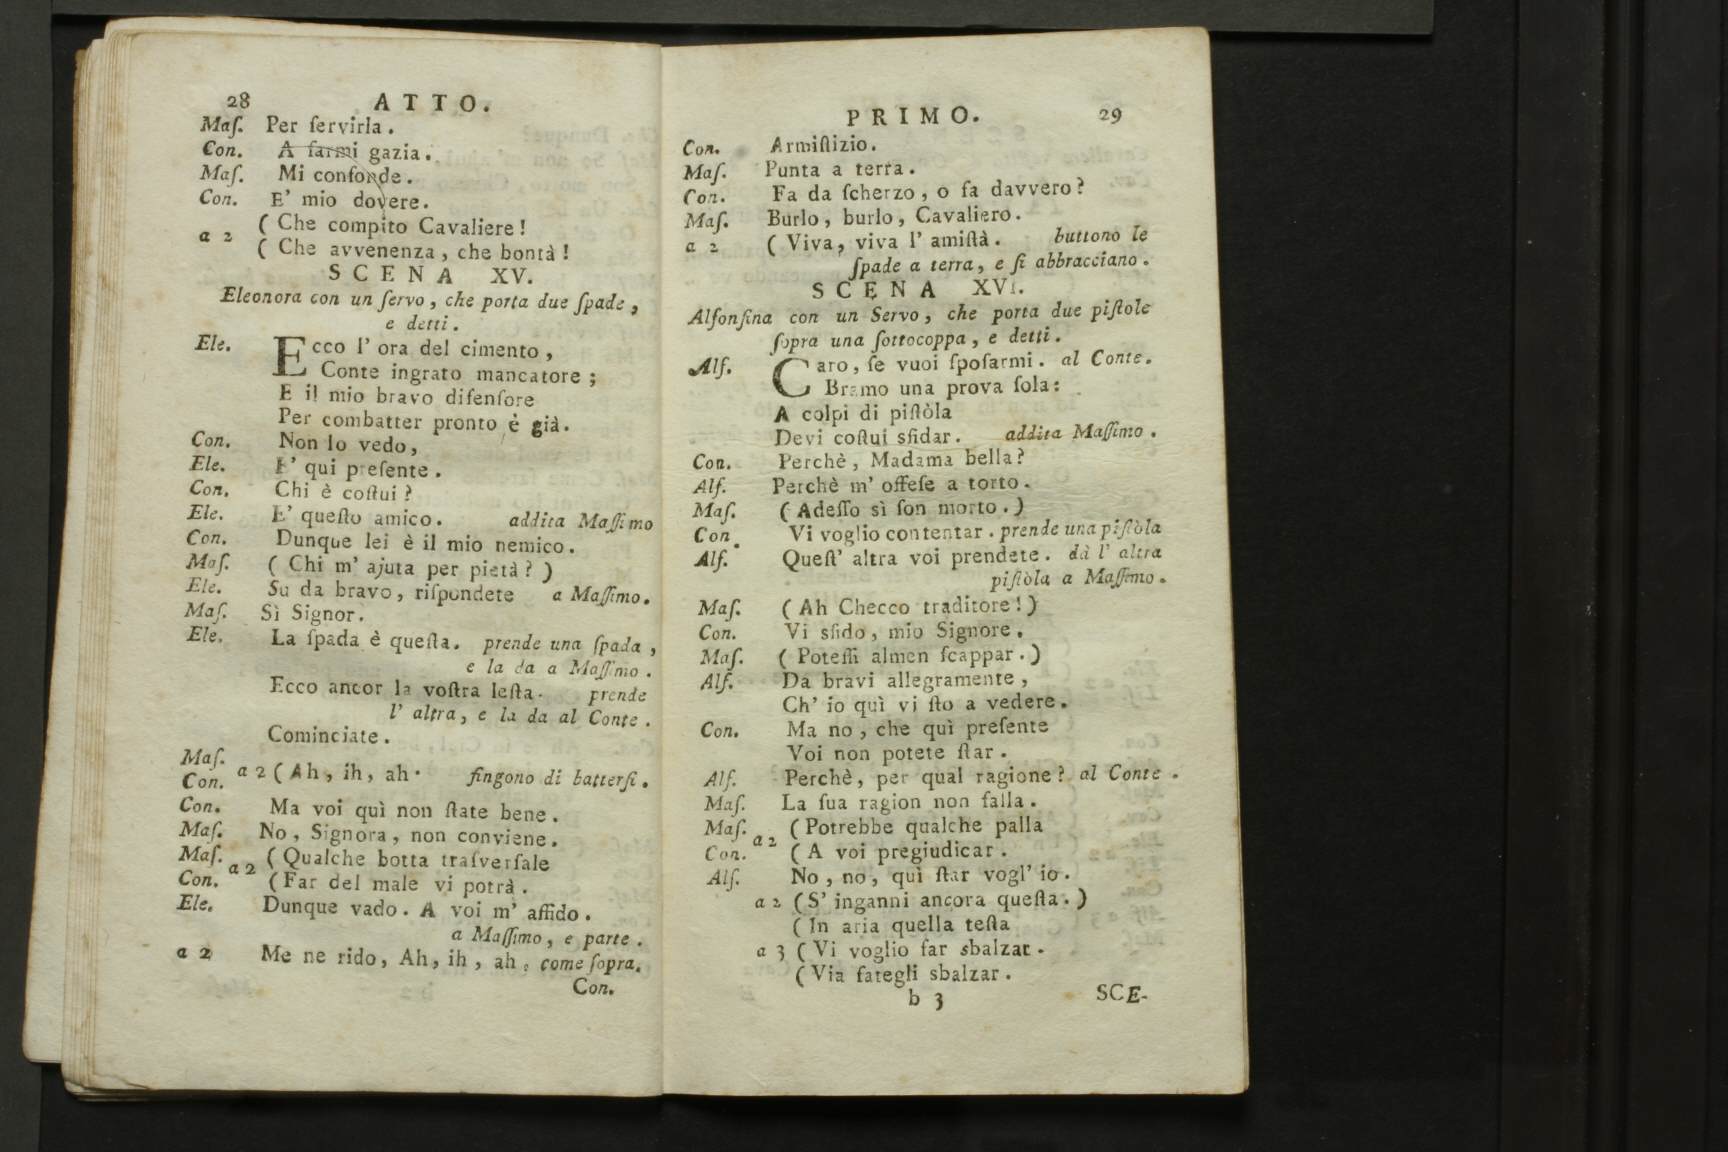 28 ATTO.
Maſ. Per ſervirla.
Con. A farmi gazia.
Maſ. Mi confonde.
Con. E' mio dovere.
a 2 ( Che compito Cavaliere!
( Che avvenenza, che bontà!
SCENA XV.
Eleonora con un ſervo, che porta due ſpade,
e detti.
Ele. Ecco l' ora del cimento,
Conte ingrato mancatore;
E il mio bravo difenſore
Per combatter pronto è già.
Con. Non lo vedo,
Ele. E' qui preſente.
Con. Chi è coſtui?
Ele. E' queſto amico. addita Maſſimo
Con. Dunque lei è il mio nemico.
Maſ. ( Chi m' ajuta per pietà? )
Ele. Su da bravo, riſpondete a Maſſimo.
Maſ. Sì Signor.
Ele. La ſpada è queſta. prende una ſpada,
e la da a Maſſimo.
Ecco ancor la voſtra leſta. prende
l' altra, e la da al Conte.
Cominciate.
Maſ.
Con. a 2 ( Ah, ih, ah. fingono di batterſi.
Con. Ma voi quì non ſtate bene.
Maſ. No, Signora, non conviene.
Maſ. a 2 ( Qualche botta traſverſale
Con. ( Far del male vi potrà.
Ele. Dunque vado. A voi m' affido.
a Maſſimo, e parte.
a 2 Me ne rido, Ah, ih, ah, come ſopra.
Con.
PRIMO. 29
Con. Armiſtizio.
Maſ. Punta a terra.
Con. Fa da ſcherzo, o fa davvero?
Maſ. Burlo, burlo, Cavaliero.
a 2 ( Viva, viva l' amiſtà. buttono le
ſpade a terra, e ſi abbracciano.
SCENA XVI.
Alfonſina con un Servo, che porta due piſtole
ſopra una ſottocoppa, e detti.
Alſ. Caro, ſe vuoi ſpoſarmi. al Conte.
Bramo una prova ſola:
A colpi di piſtòla
Devi coſtui sfidar. addita Maſſimo.
Con. Perchè, Madama bella?
Alf. Perchè m' offeſe a torto.
Maſ. ( Adeſſo sì ſon morto. )
Con. Vi voglio contentar. prende una piſtòla
Alf. Queſt' altra voi prendete. dà l' altra
piſtòla a Maſſimo.
Maſ. ( Ah Checco traditore! )
Con. Vi sfido, mio Signore.
Maſ. ( Poteſſi almen ſcappar. )
Alf. Da bravi allegramente,
Ch' io quì vi ſto a vedere.
Con. Ma no, che quì preſente
Voi non potete ſtar.
Alf. Perchè, per qual ragione? al Conte.
Maſ. La ſua ragion non falla.
Maſ. a 2 ( Potrebbe qualche palla
Con. ( A voi pregiudicar.
Alſ. No, no, quì ſtar vogl' io.
a 2 ( S' inganni ancora queſta. )
( In aria quella teſta
a 3 ( Vi voglio far sbalzar.
( Via fategli sbalzar.
b 3 SCE-